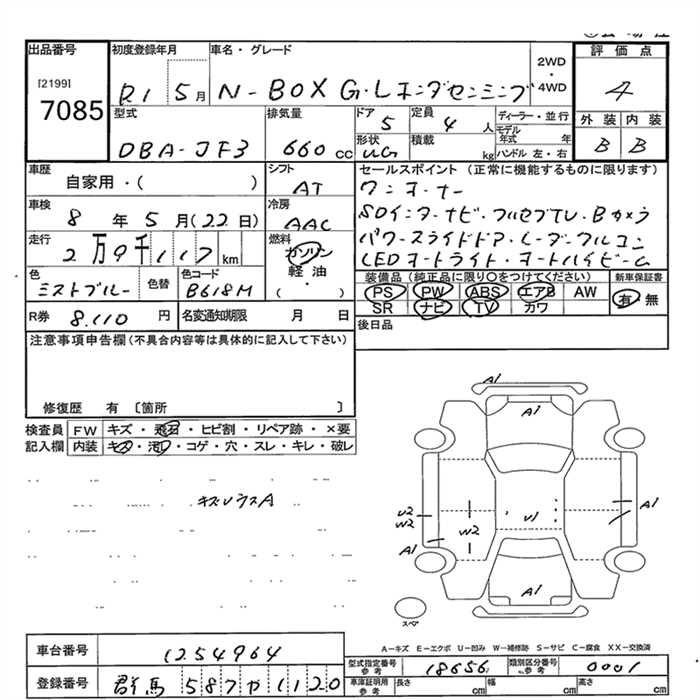 出品番号 初度登録年月 車名・グレード 2WD・4WD 評価点
[2199]
7085
R1 5月 N-BOX G・Lホンダセンシング 4
型式 排気量 ドア 定員 ディーラー・並行 外装 内装
DBA-JF3 660cc 5 4人 モデル年式 年
形状 UG 積載 kg ハンドル 左・右 B B
車歴 シフト セールスポイント (正常に機能するものに限ります)
自家用・( ) AT ワンオーナー
車検 冷房 SDインターナビ・フルセグTV・Bカメラ
8年5月(22日) AAC パワースライドドア・レーダークルコン
走行 燃料 LEDオートライト・オートハイビーム
2万9千117km ガソリン 軽油 ( )
色 色替 色コード 装備品 (純正品に限り○をつけてください) 新車保証書
ミストブルー B618M PS PW ABS エアB AW 有 無
SR ナビ TV カワ
R券 8,110円 名変通知期限 月 日 後日品
注意事項申告欄(不具合内容等は具体的に記入して下さい)
修復歴 有 〔箇所 〕
検査員 FW キズ・飛石・ヒビ割・リペア跡・×要
記入欄 内装 キズ・汚れ・コゲ・穴・スレ・キレ・破レ
A1
A1
キズルウスA
U2
W2
W2
U1
A1
A1
A1
スペア
A-キズ E-エクボ U-凹み W-補修跡 S-サビ C-腐食 XX-交換済
車台番号 1254964 型式指定番号 参考 18656 類別区分番号 参考 0001
登録番号 群馬 587 や 1120 車庫証明用 参考 長さ cm 幅 cm 高さ cm